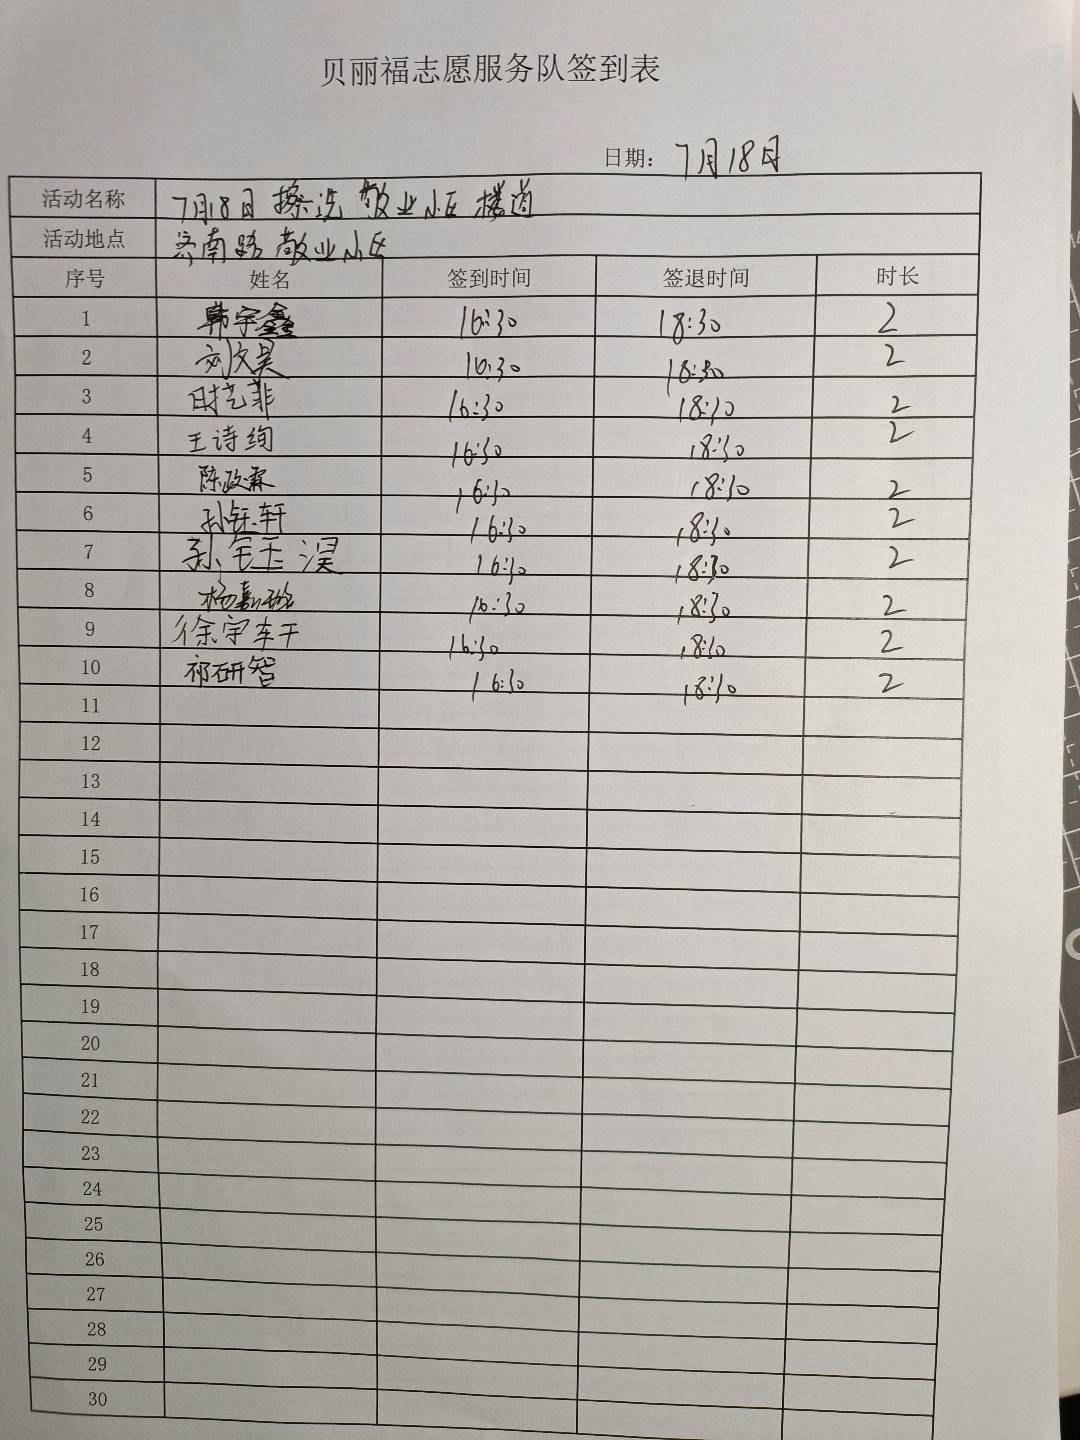 贝丽福志愿服务队签到表
日期：7月18日
活动名称 7月18日 擦洗 敬业小区 楼道
活动地点 济南路 敬业小区
序号 姓名 签到时间 签退时间 时长
1 韩宇鑫 16:30 18:30 2
2 刘文昊 16:30 18:30 2
3 时艺菲 16:30 18:30 2
4 王诗绚 16:30 18:30 2
5 陈政霖 16:30 18:30 2
6 孙钰轩 16:30 18:30 2
7 16:30 18:30 2
8 杨嘉 16:30 18:30 2
9 徐宇轩 16:30 18:30 2
10 祁研智 16:30 18:30 2
11
12
13
14
15
16
17
18
19
20
21
22
23
24
25
26
27
28
29
30